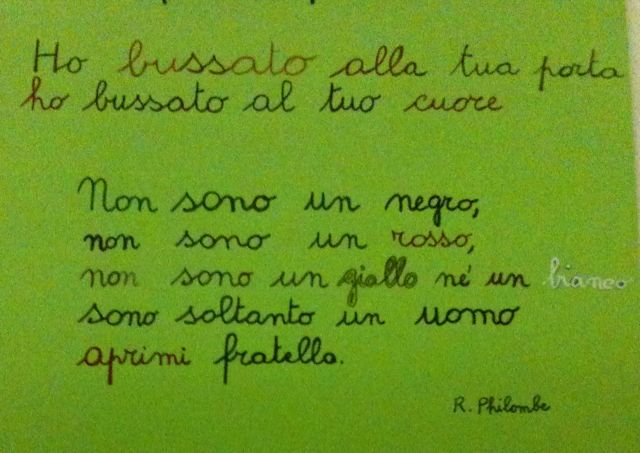 Ho bussato alla tua porta
ho bussato al tuo cuore
Non sono un negro,
non sono un rosso,
non sono un giallo né un bianco
sono soltanto un uomo
aprimi fratello.
R. Philombe